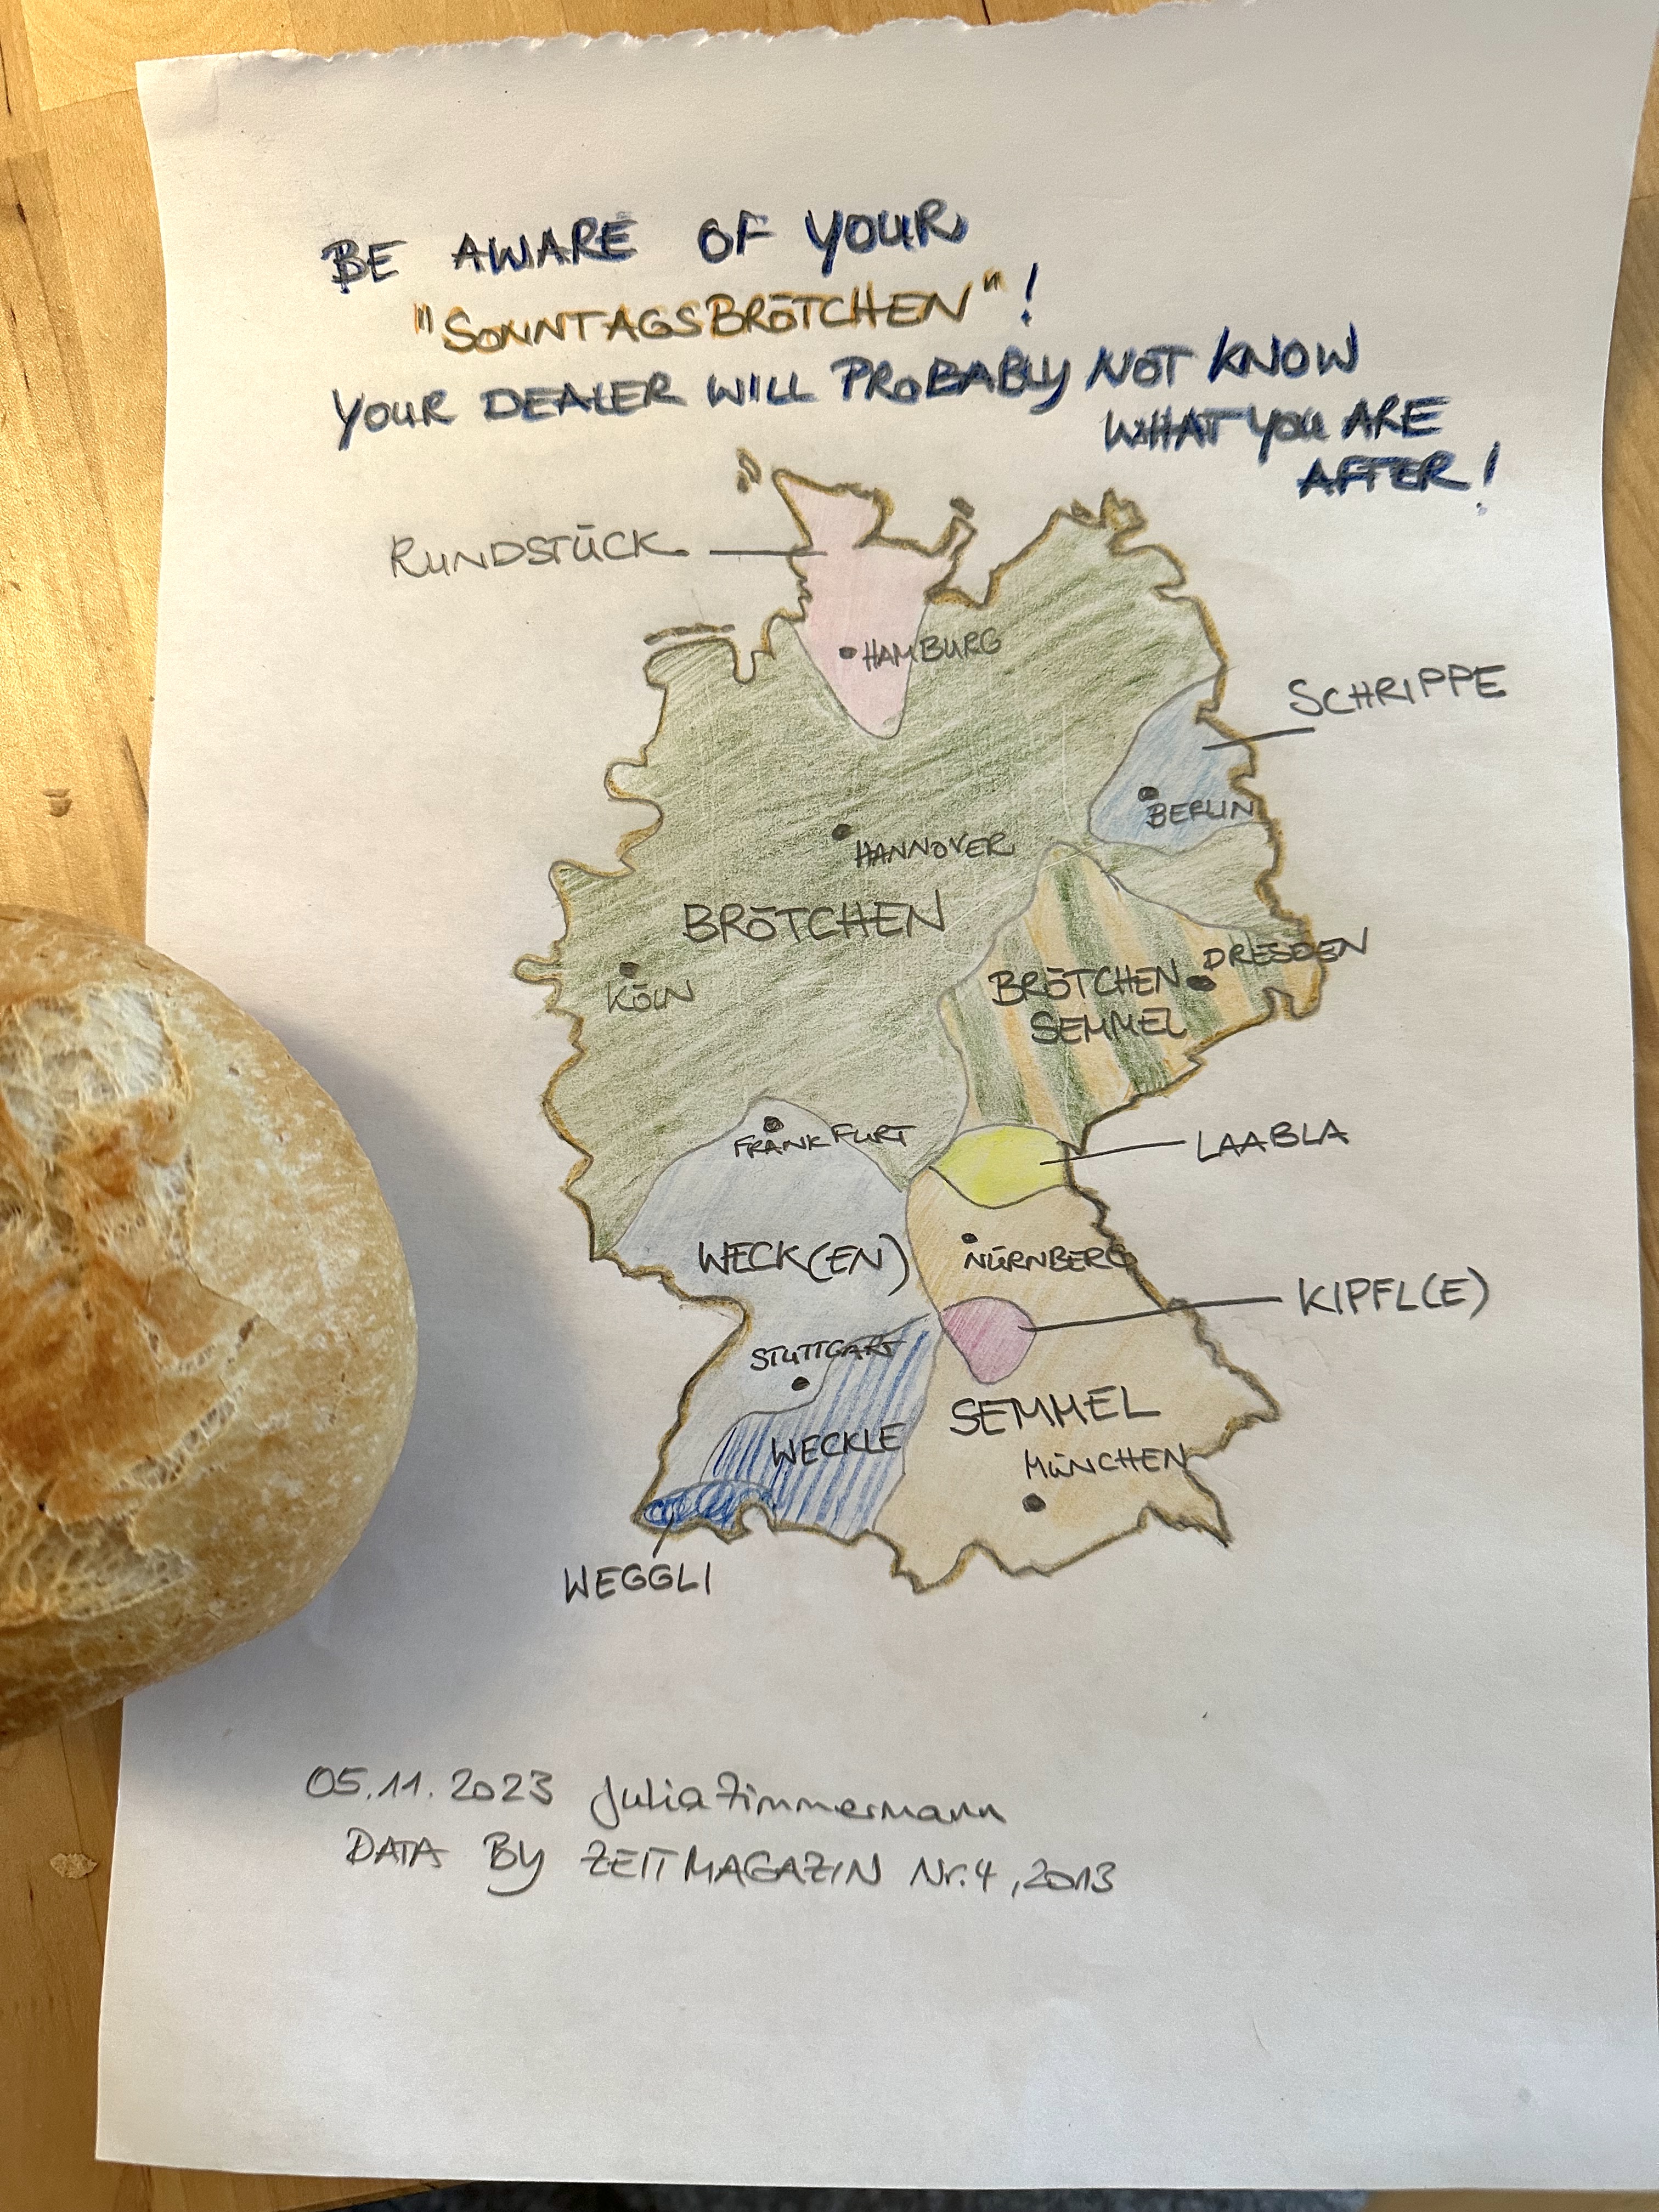 BE AWARE OF YOUR
"SONNTAGSBRÖTCHEN"!
YOUR DEALER WILL PROBABLY NOT KNOW
WHAT YOU ARE
AFTER!
RUNDSTÜCK
HAMBURG
SCHRIPPE
BERLIN
HANNOVER
BRÖTCHEN
DRESDEN
KÖLN
BRÖTCHEN
SEMMEL
FRANKFURT
LAABLA
WECK(EN)
NÜRNBERG
KIPFL(E)
STUTTGART
SEMMEL
WECKLE
MÜNCHEN
WEGGLI
05.11.2023 Julia Zimmermann
DATA BY ZEITMAGAZIN Nr. 4, 2013